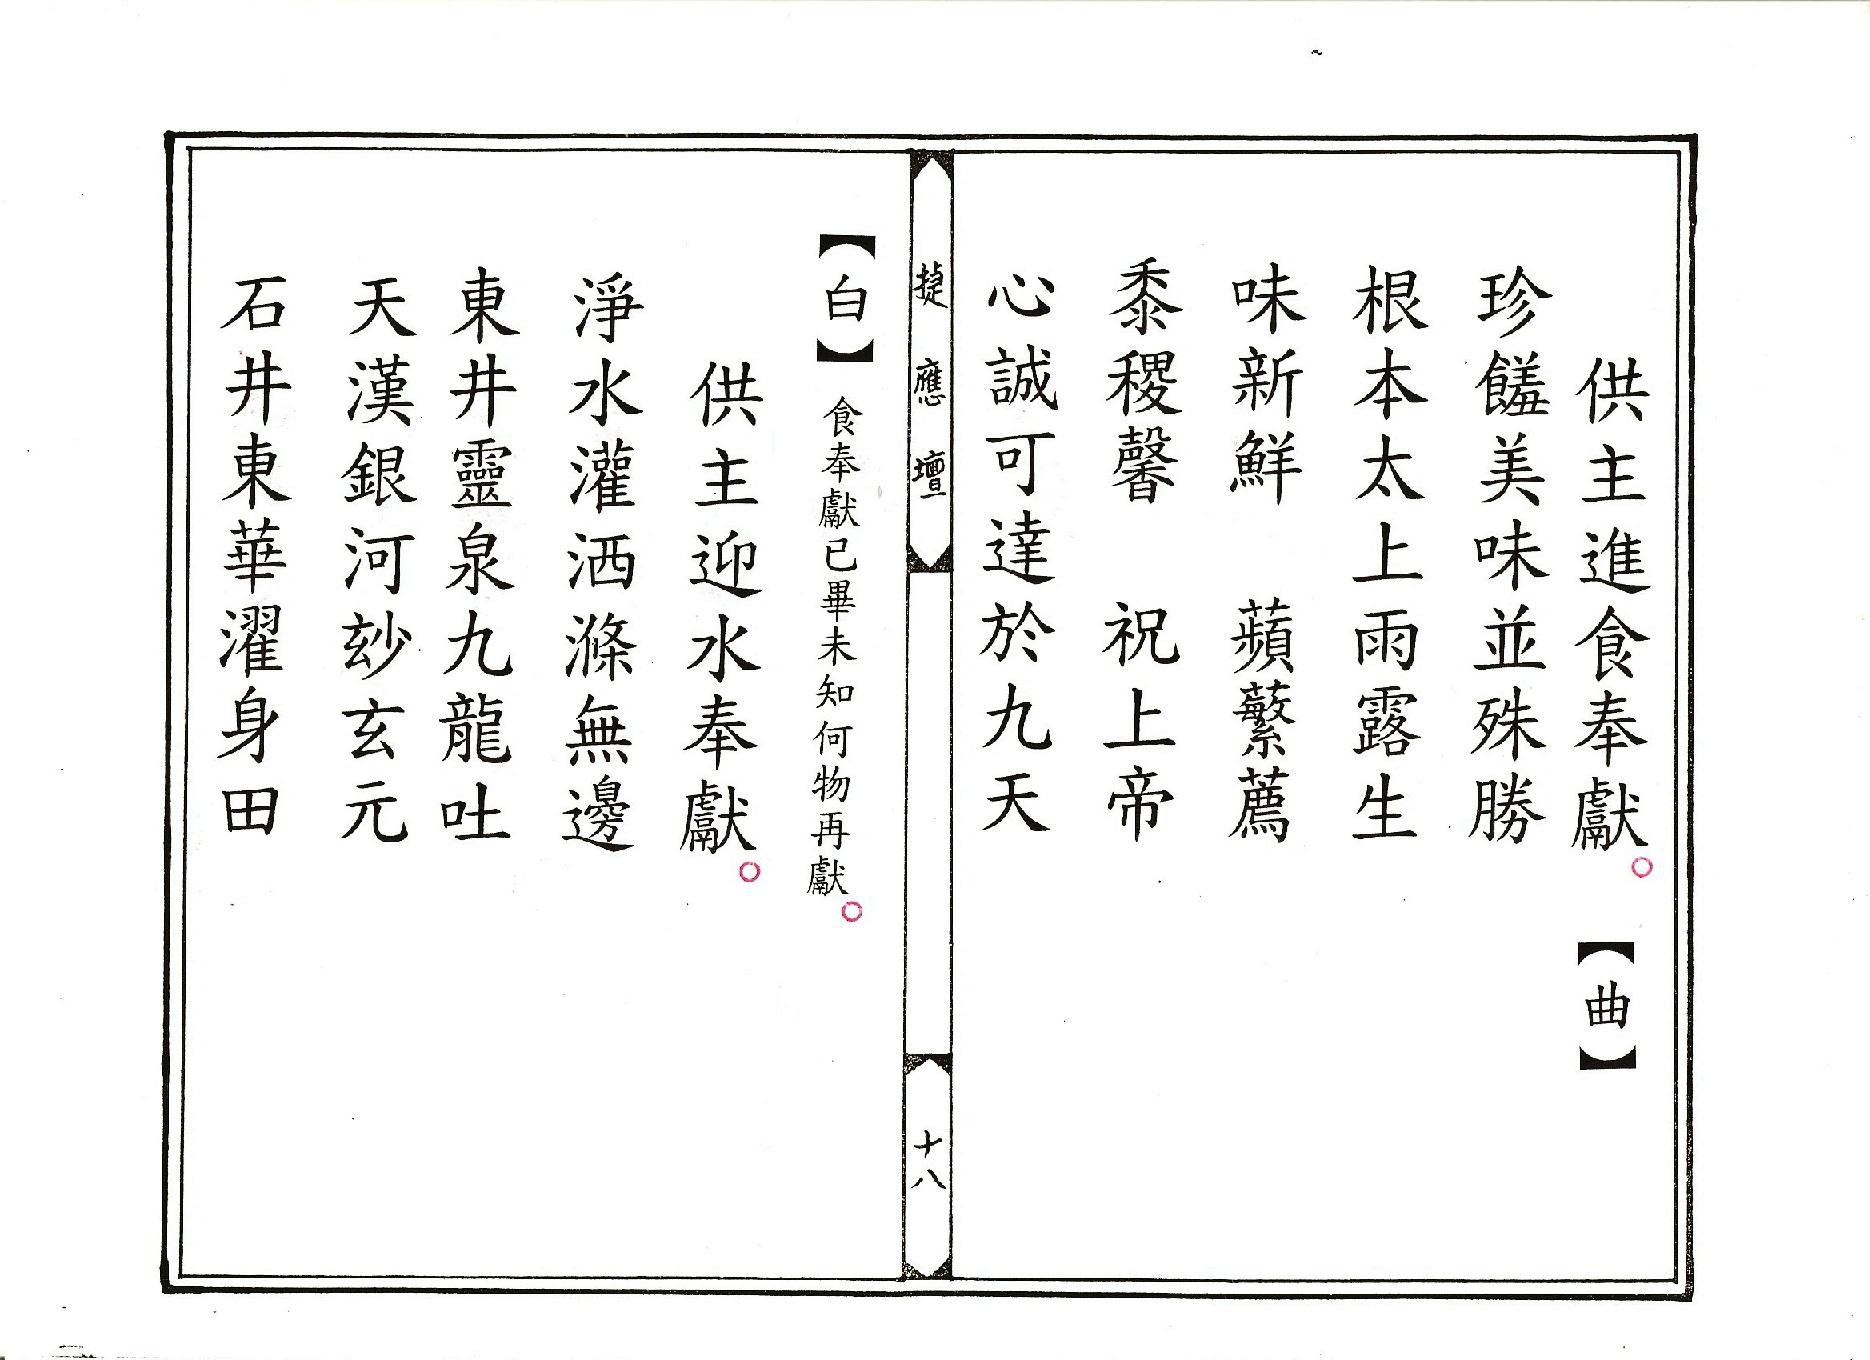 供主進食奉獻。【曲】
珍饈美味並殊勝
根本太上雨露生
味新鮮　蘋蘩薦
黍稷馨　祝上帝
心誠可達於九天
捷應壇　十八
【白】食奉獻已畢未知何物再獻。
供主迎水奉獻。
淨水灌洒滌無邊
東井靈泉九龍吐
天漢銀河玅玄元
石井東華濯身田